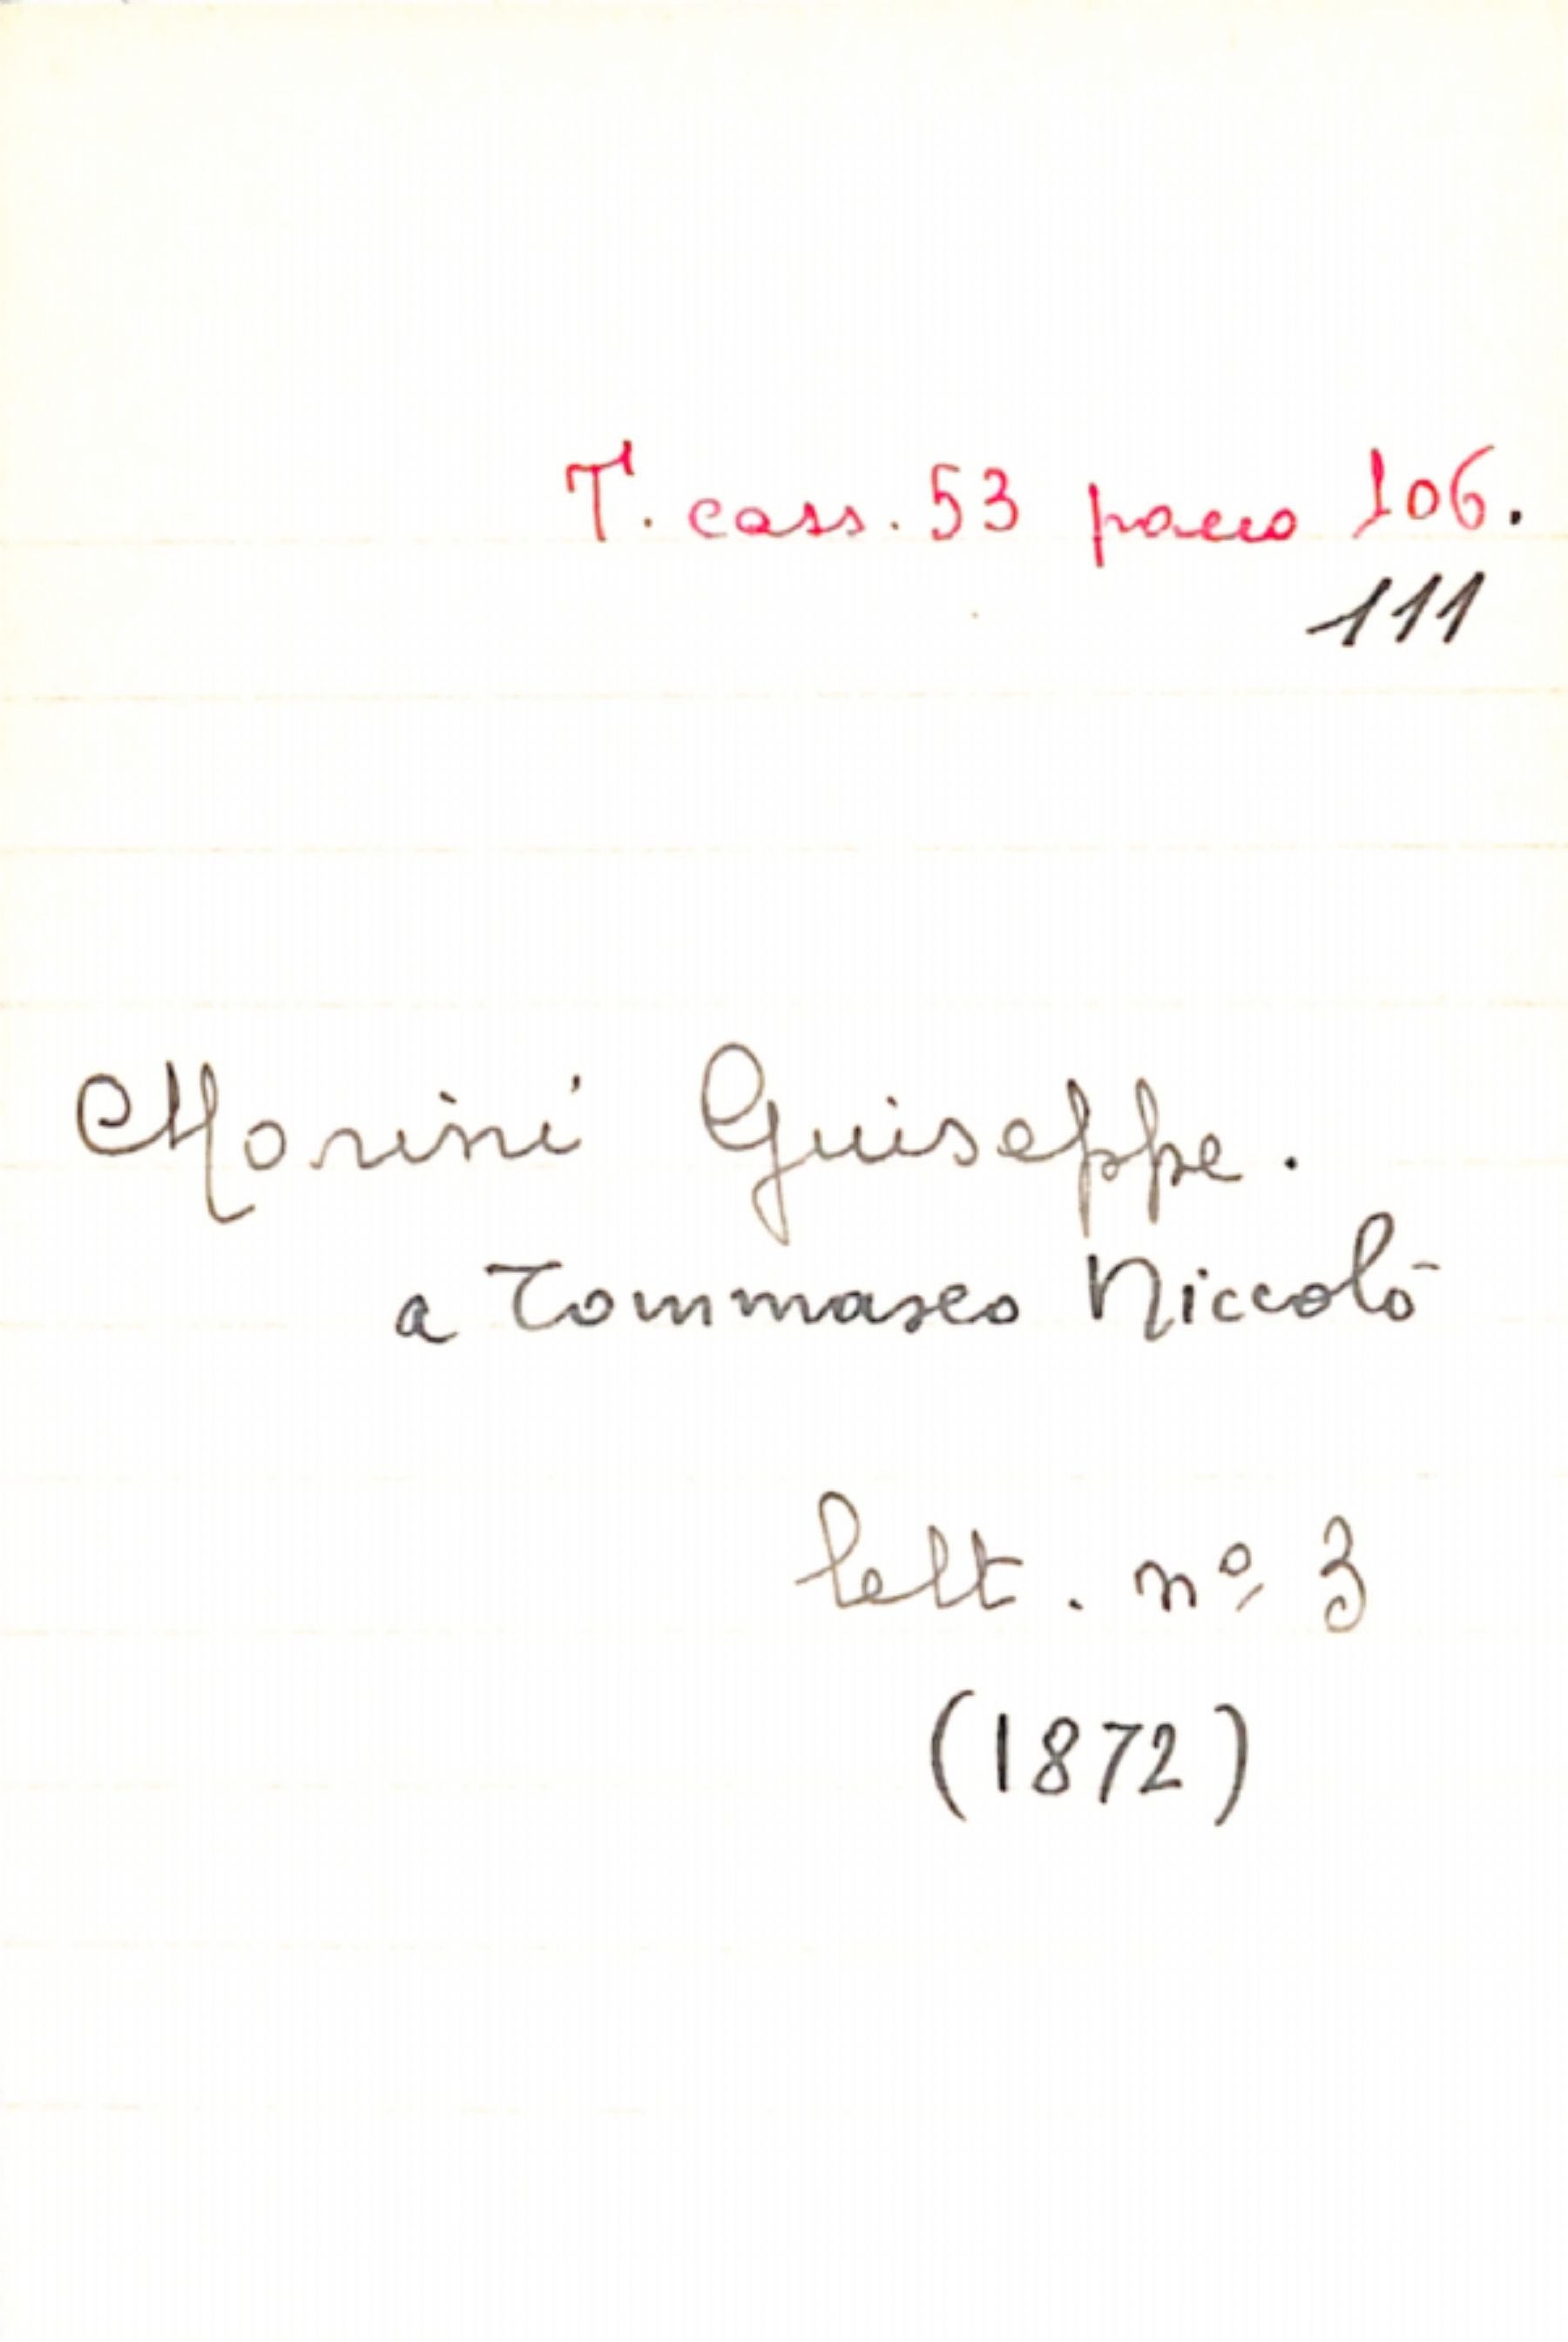 T. cass. 53 pacco 106.
111
Morini Giuseppe.
a Tommaseo Niccolò
lett. nº 3
(1872)